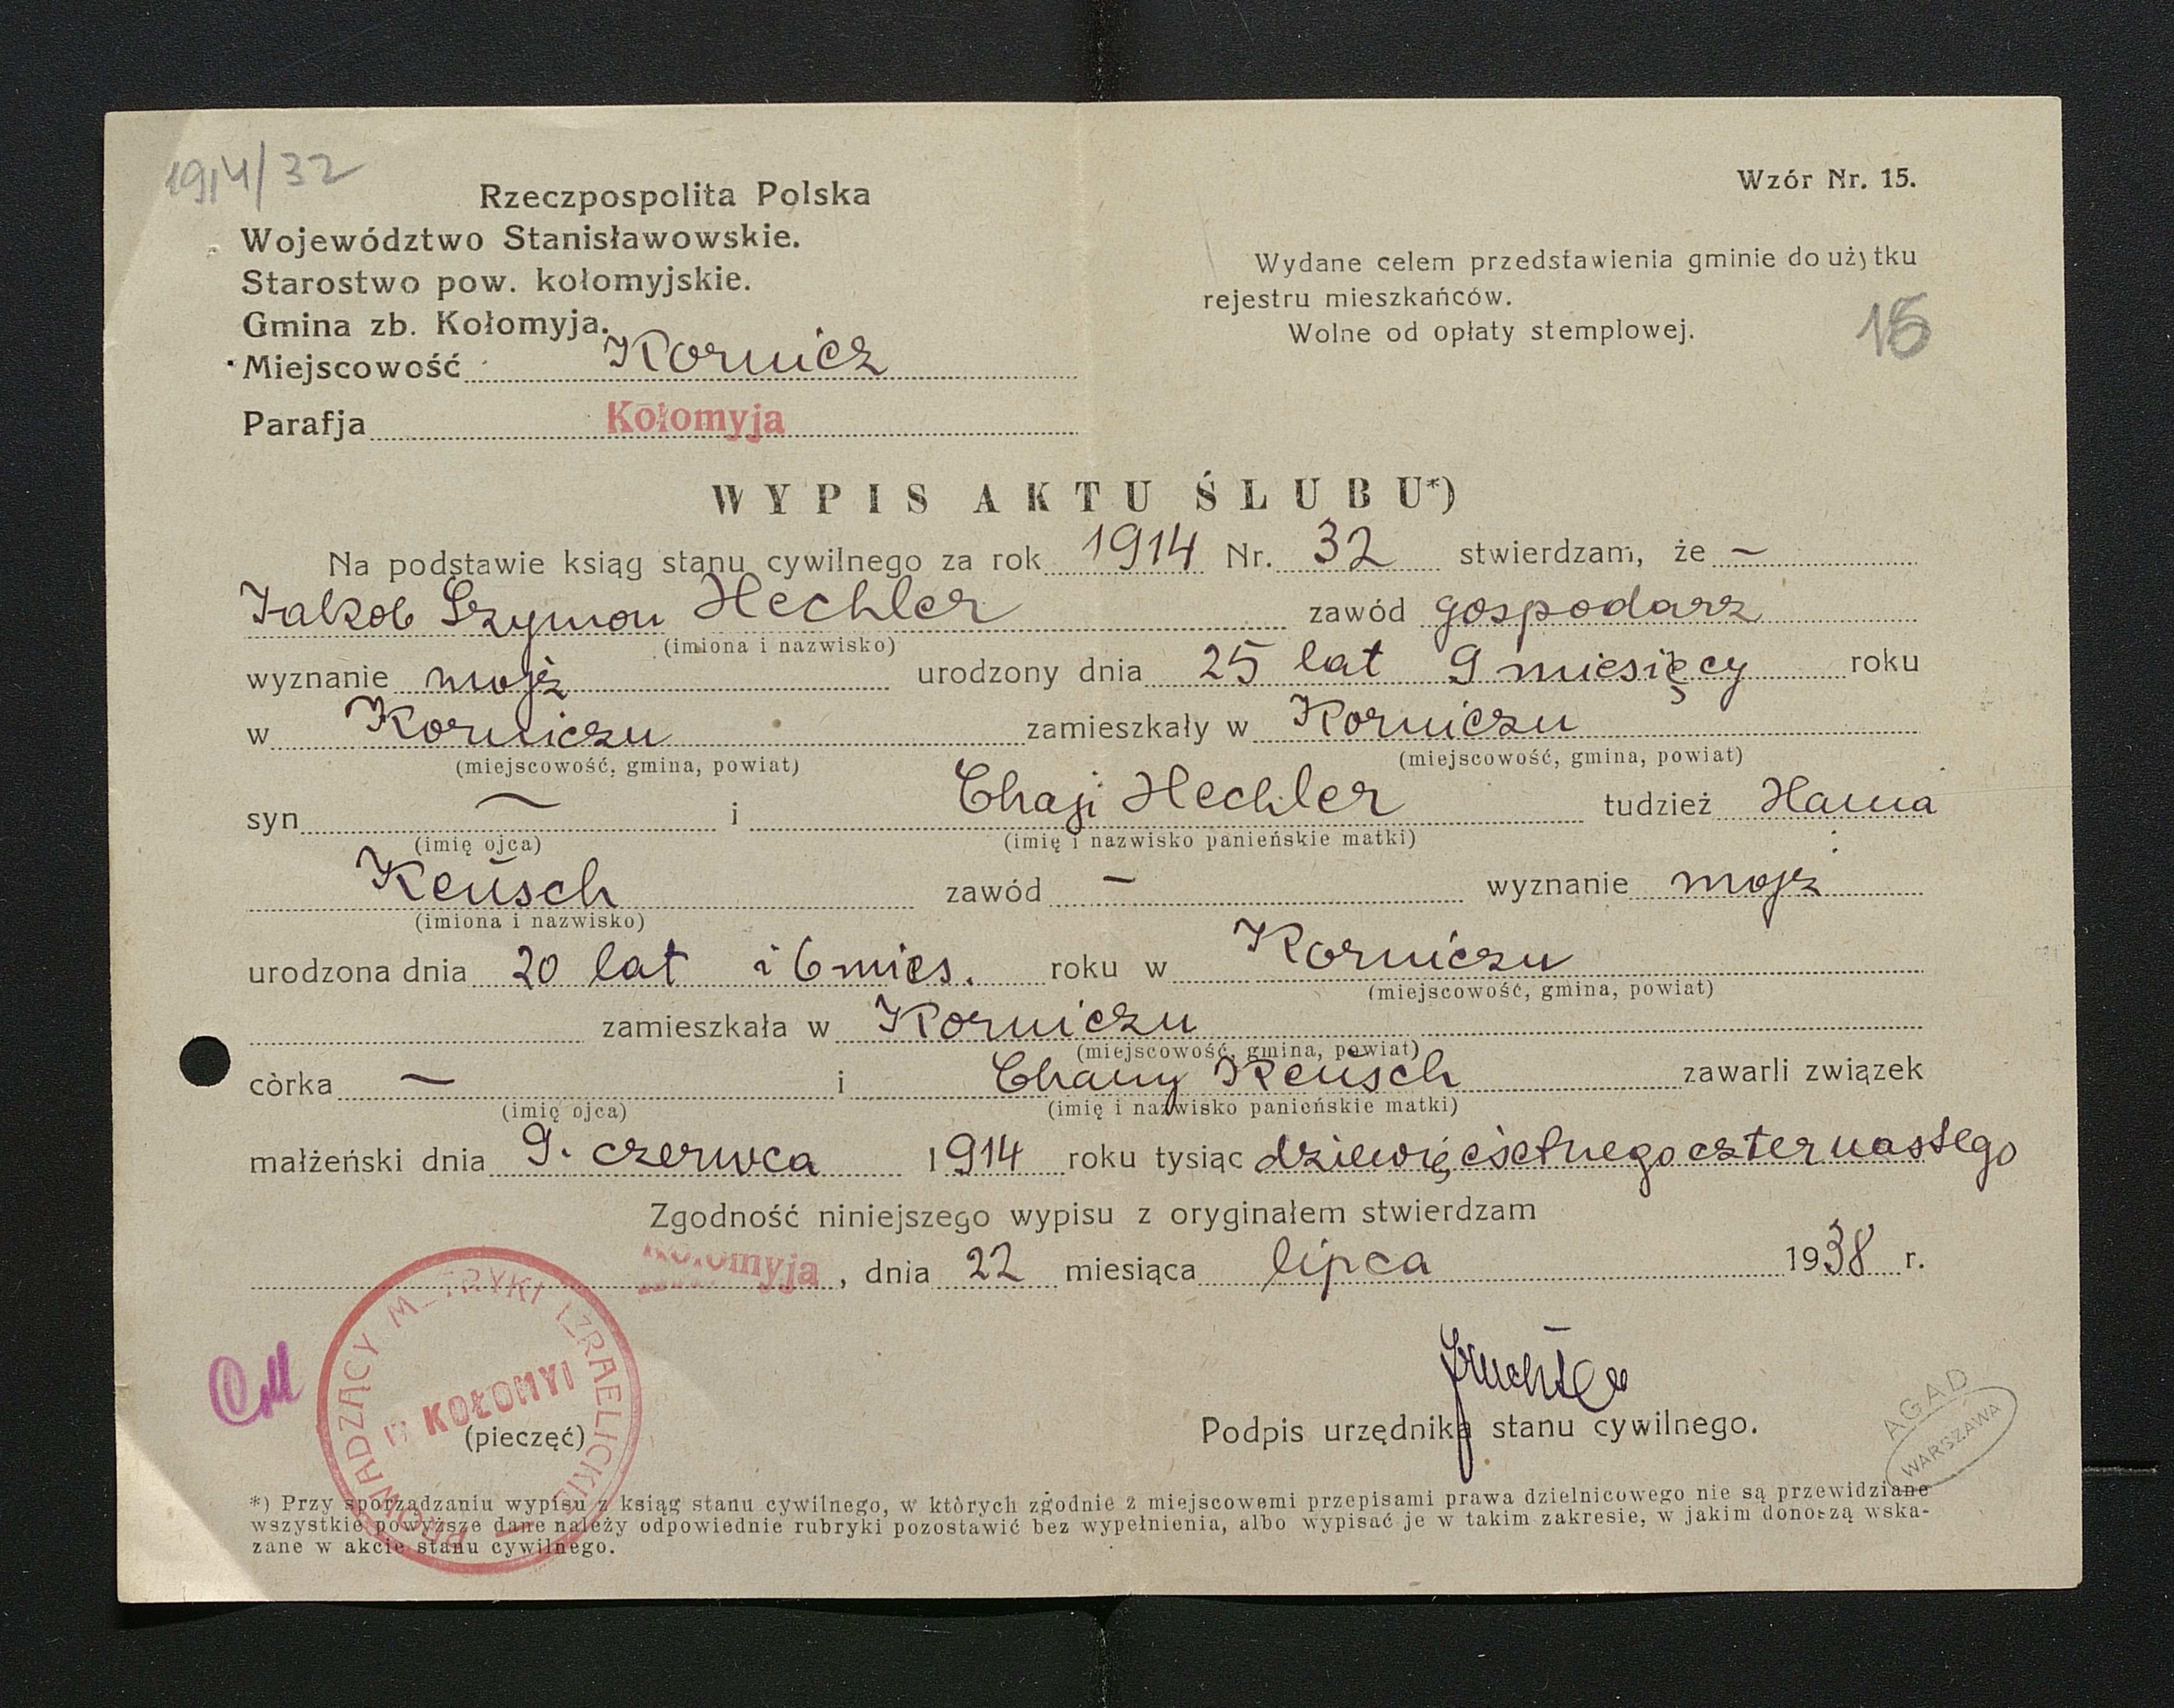 1914/32
Rzeczpospolita Polska
Wzór Nr. 15.
Województwo Stanisławowskie.
Starostwo pow. kołomyjskie.
Gmina zb. Kołomyja.
Miejscowość Kornicz
Parafja Kołomyja
Wydane celem przedstawienia gminie do użytku
rejestru mieszkańców.
Wolne od opłaty stemplowej.
15
WYPIS AKTU ŚLUBU*)
Na podstawie ksiąg stanu cywilnego za rok 1914 Nr. 32 stwierdzam, że —
Jakob Szymon Hechler zawód gospodarz
(imiona i nazwisko)
wyznanie mojż urodzony dnia 25 lat 9 miesięcy roku
w Korniczu zamieszkały w Korniczu
(miejscowość, gmina, powiat) (miejscowość, gmina, powiat)
syn — i Chaji Hechler tudzież Hania
(imię ojca) (imię i nazwisko panieńskie matki)
Reüsch zawód — wyznanie mojż
(imiona i nazwisko)
urodzona dnia 20 lat i 6 mies. roku w Korniczu
(miejscowość, gmina, powiat)
zamieszkała w Korniczu
(miejscowość, gmina, powiat)
còrka — i Chany Reüsch zawarli związek
(imię ojca) (imię i nazwisko panieńskie matki)
małżeński dnia 9. czerwca 1914 roku tysiąc dziewięćsetnego czternastego
Zgodność niniejszego wypisu z oryginałem stwierdzam
Kołomyja, dnia 22 miesiąca lipca 1938 r.
PROWADZĄCY METRYKI IZRAELICKIE
W KOŁOMYI
(pieczęć)
Podpis urzędnika stanu cywilnego.
AGAD
WARSZAWA
*) Przy sporządzaniu wypisu z ksiąg stanu cywilnego, w których zgodnie z miejscowemi przepisami prawa dzielnicowego nie są przewidziane
wszystkie powyższe dane należy odpowiednie rubryki pozostawić bez wypełnienia, albo wypisać je w takim zakresie, w jakim donoszą wska-
zane w akcie stanu cywilnego.